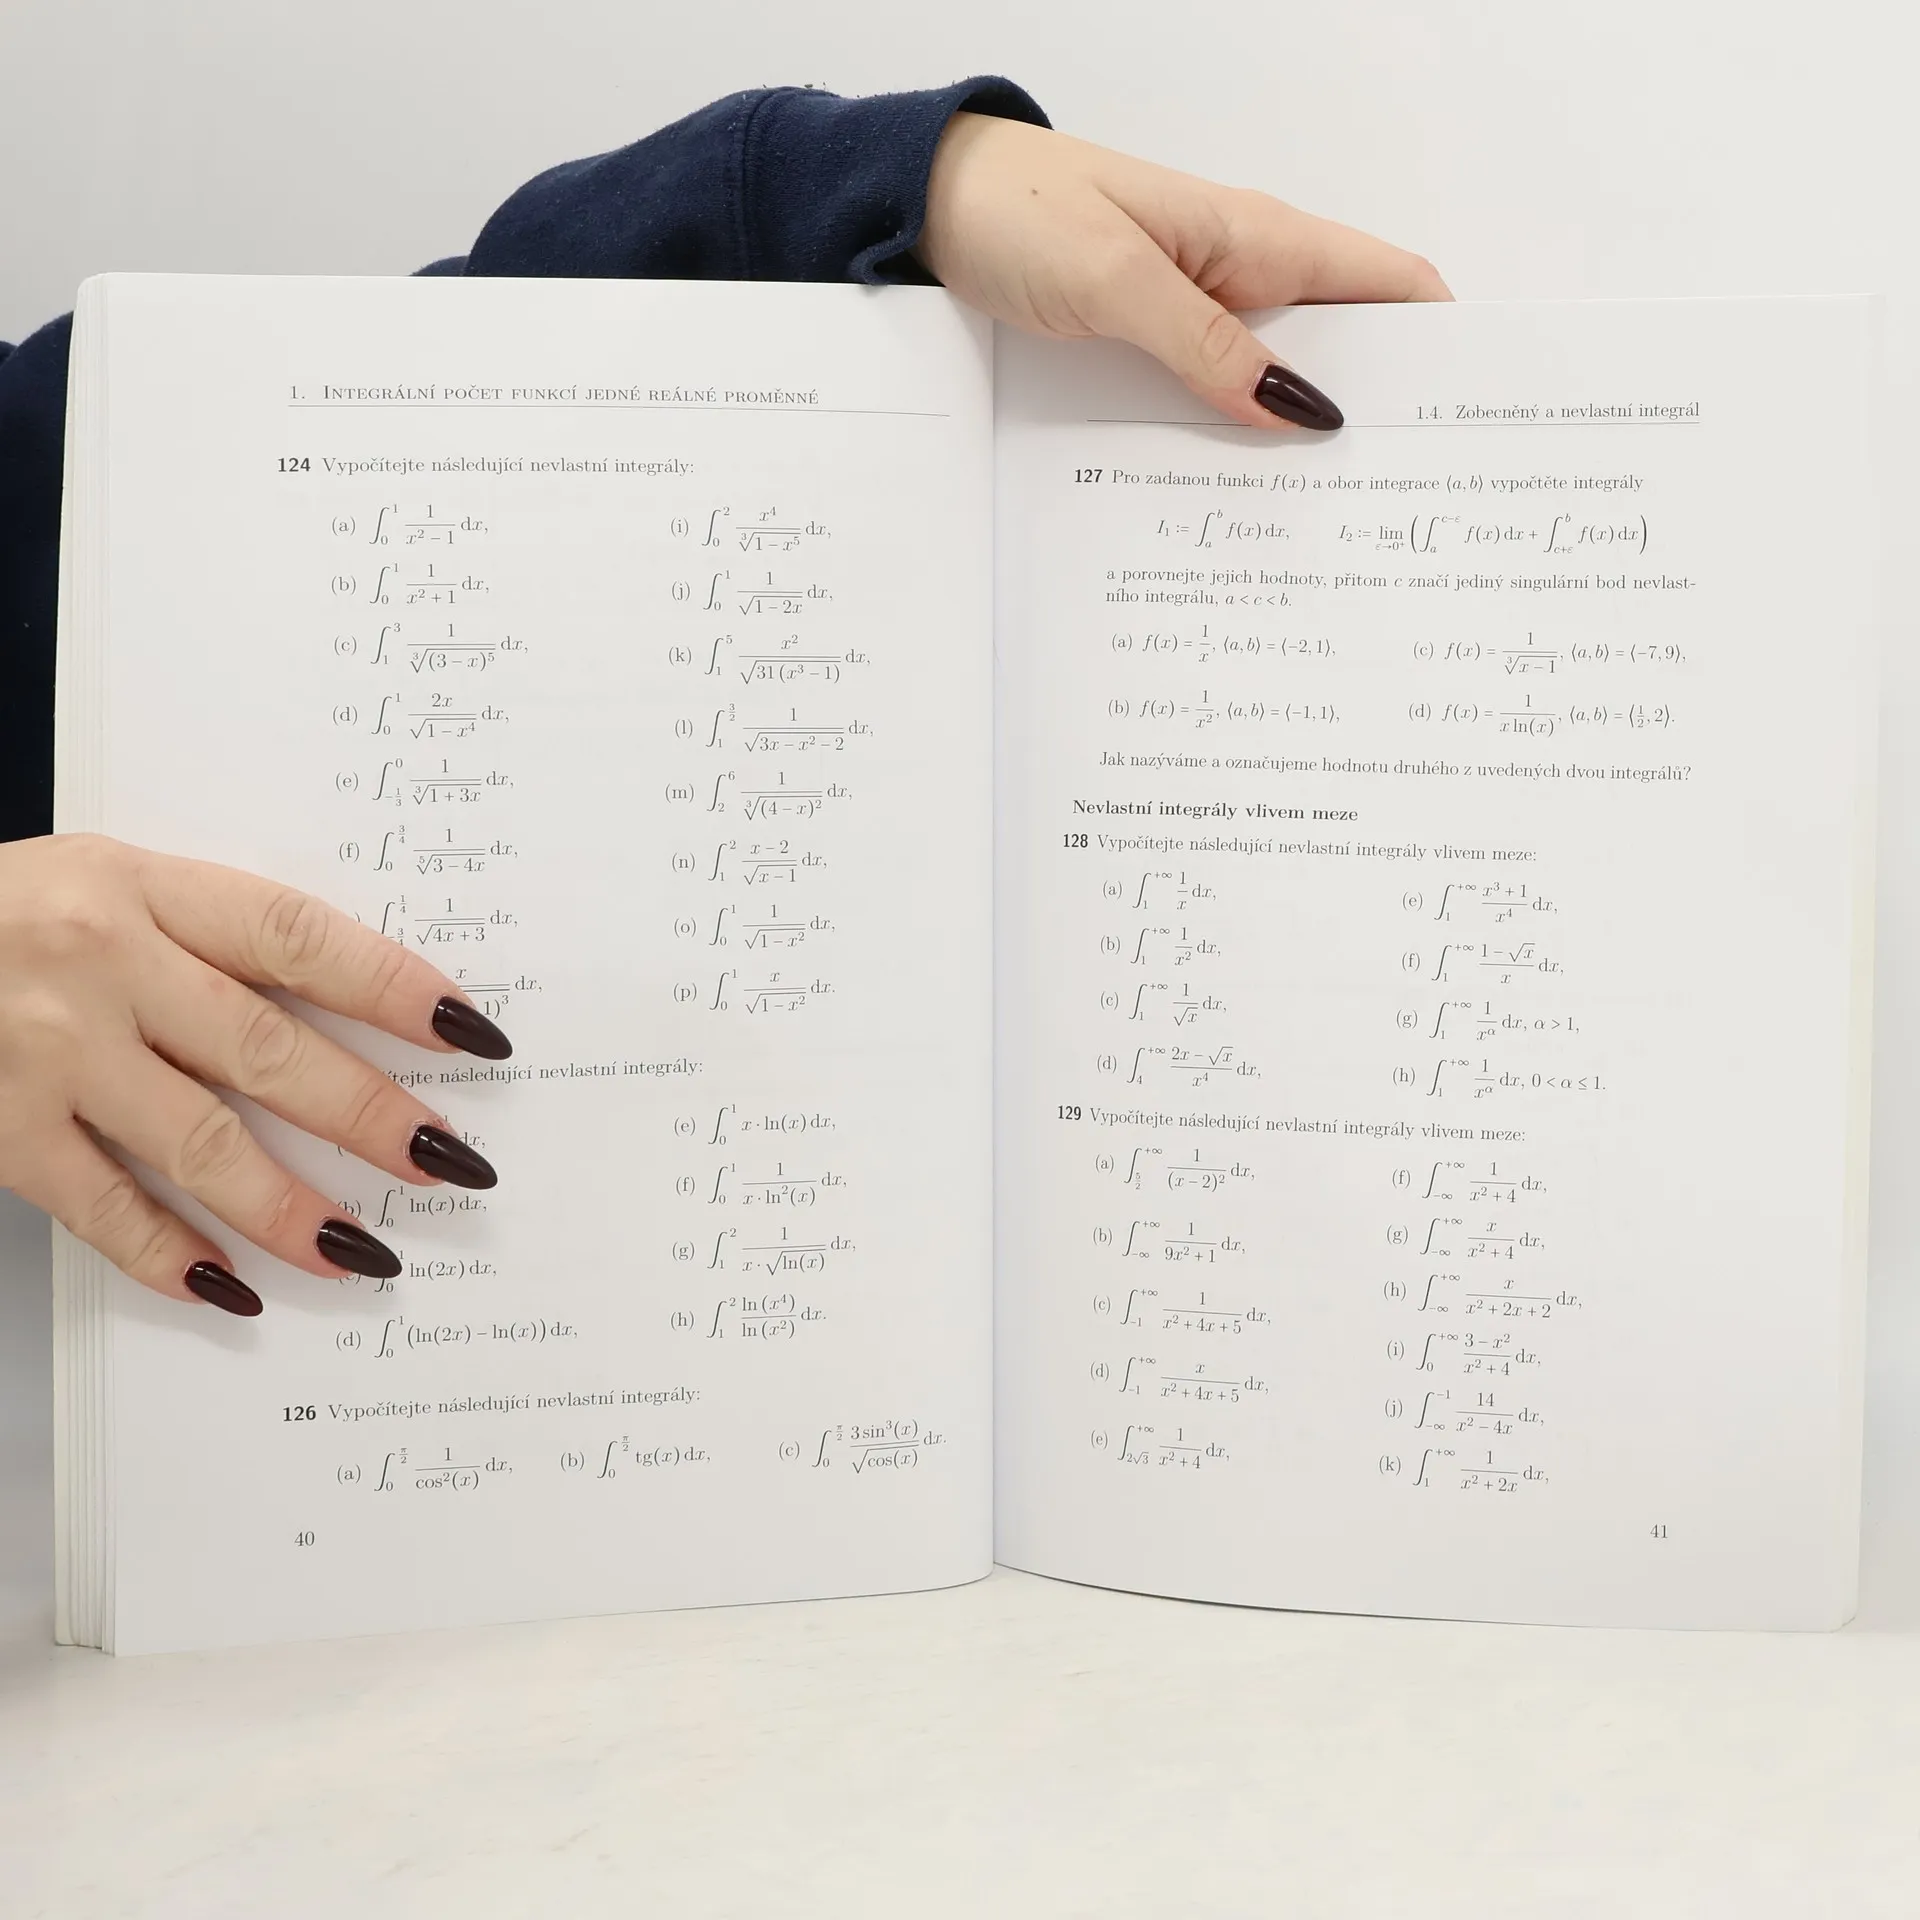 1. INTEGRÁLNÍ POČET FUNKCÍ JEDNÉ REÁLNÉ PROMĚNNÉ
124 Vypočítejte následující nevlastní integrály:
(a) ∫_0^1 1/(x² − 1) dx,
(b) ∫_0^1 1/(x² + 1) dx,
(c) ∫_1^3 1/∛((3 − x)⁵) dx,
(d) ∫_0^1 2x/√(1 − x⁴) dx,
(e) ∫_{−1/3}^0 1/∛(1 + 3x) dx,
(f) ∫_0^{3/4} 1/⁵√(3 − 4x) dx,
) ∫_{−3/4}^{1/4} 1/√(4x + 3) dx,
x/ 1)³ dx,
(i) ∫_0^2 x⁴/∛(1 − x⁵) dx,
(j) ∫_0^1 1/√(1 − 2x) dx,
(k) ∫_1^5 x²/√(31 (x³ − 1)) dx,
(l) ∫_1^{3/2} 1/√(3x − x² − 2) dx,
(m) ∫_2^6 1/∛((4 − x)²) dx,
(n) ∫_1^2 (x − 2)/√(x − 1) dx,
(o) ∫_0^1 1/√(1 − x²) dx,
(p) ∫_0^1 x/√(1 − x²) dx.
ítejte následující nevlastní integrály:
dx,
(b) ∫_0^1 ln(x) dx,
∫_0^1 ln(2x) dx,
(d) ∫_0^1 (ln(2x) − ln(x)) dx,
(e) ∫_0^1 x · ln(x) dx,
(f) ∫_0^1 1/(x · ln²(x)) dx,
(g) ∫_1^2 1/(x · √ln(x)) dx,
(h) ∫_1^2 ln (x⁴)/ln (x²) dx.
126 Vypočítejte následující nevlastní integrály:
(a) ∫_0^{π/2} 1/cos²(x) dx, (b) ∫_0^{π/2} tg(x) dx, (c) ∫_0^{π/2} 3 sin³(x)/√cos(x) dx.
40
1.4. Zobecněný a nevlastní integrál
127 Pro zadanou funkci f(x) a obor integrace ⟨a, b⟩ vypočtěte integrály
I₁ := ∫_a^b f(x) dx, I₂ := lim_{ε→0⁺} (∫_a^{c−ε} f(x) dx + ∫_{c+ε}^b f(x) dx)
a porovnejte jejich hodnoty, přitom c značí jediný singulární bod nevlast-
ního integrálu, a < c < b.
(a) f(x) = 1/x, ⟨a, b⟩ = ⟨−2, 1⟩, (c) f(x) = 1/∛(x − 1), ⟨a, b⟩ = ⟨−7, 9⟩,
(b) f(x) = 1/x², ⟨a, b⟩ = ⟨−1, 1⟩, (d) f(x) = 1/(x ln(x)), ⟨a, b⟩ = ⟨1/2, 2⟩.
Jak nazýváme a označujeme hodnotu druhého z uvedených dvou integrálů?
Nevlastní integrály vlivem meze
128 Vypočítejte následující nevlastní integrály vlivem meze:
(a) ∫_1^{+∞} 1/x dx,
(b) ∫_1^{+∞} 1/x² dx,
(c) ∫_1^{+∞} 1/√x dx,
(d) ∫_4^{+∞} (2x − √x)/x⁴ dx,
(e) ∫_1^{+∞} (x³ + 1)/x⁴ dx,
(f) ∫_1^{+∞} (1 − √x)/x dx,
(g) ∫_1^{+∞} 1/x^α dx, α > 1,
(h) ∫_1^{+∞} 1/x^α dx, 0 < α ≤ 1.
129 Vypočítejte následující nevlastní integrály vlivem meze:
(a) ∫_{5/2}^{+∞} 1/(x − 2)² dx,
(b) ∫_{−∞}^{+∞} 1/(9x² + 1) dx,
(c) ∫_{−1}^{+∞} 1/(x² + 4x + 5) dx,
(d) ∫_{−1}^{+∞} x/(x² + 4x + 5) dx,
(e) ∫_{2√3}^{+∞} 1/(x² + 4) dx,
(f) ∫_{−∞}^{+∞} 1/(x² + 4) dx,
(g) ∫_{−∞}^{+∞} x/(x² + 4) dx,
(h) ∫_{−∞}^{+∞} x/(x² + 2x + 2) dx,
(i) ∫_0^{+∞} (3 − x²)/(x² + 4) dx,
(j) ∫_{−∞}^{−1} 14/(x² − 4x) dx,
(k) ∫_1^{+∞} 1/(x² + 2x) dx,
41